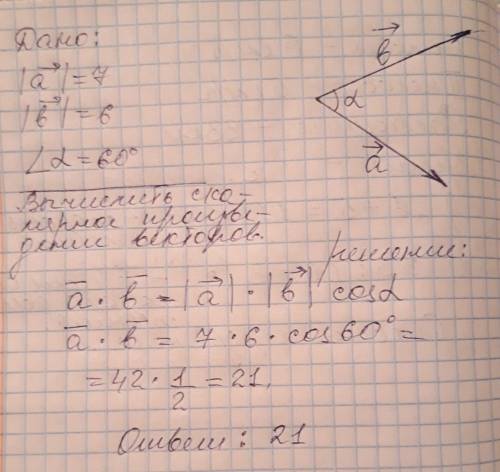 Дано:
|a⃗| = 7
|b⃗| = 6
∠α = 60°
Вычислить ска-
лярное произве-
дение векторов.
b⃗
α
a⃗
решение:
a̅ · b̅ = |a⃗| · |b⃗| cosα
a̅ · b̅ = 7 · 6 · cos 60° =
= 42 · 1/2 = 21.
Ответ: 21